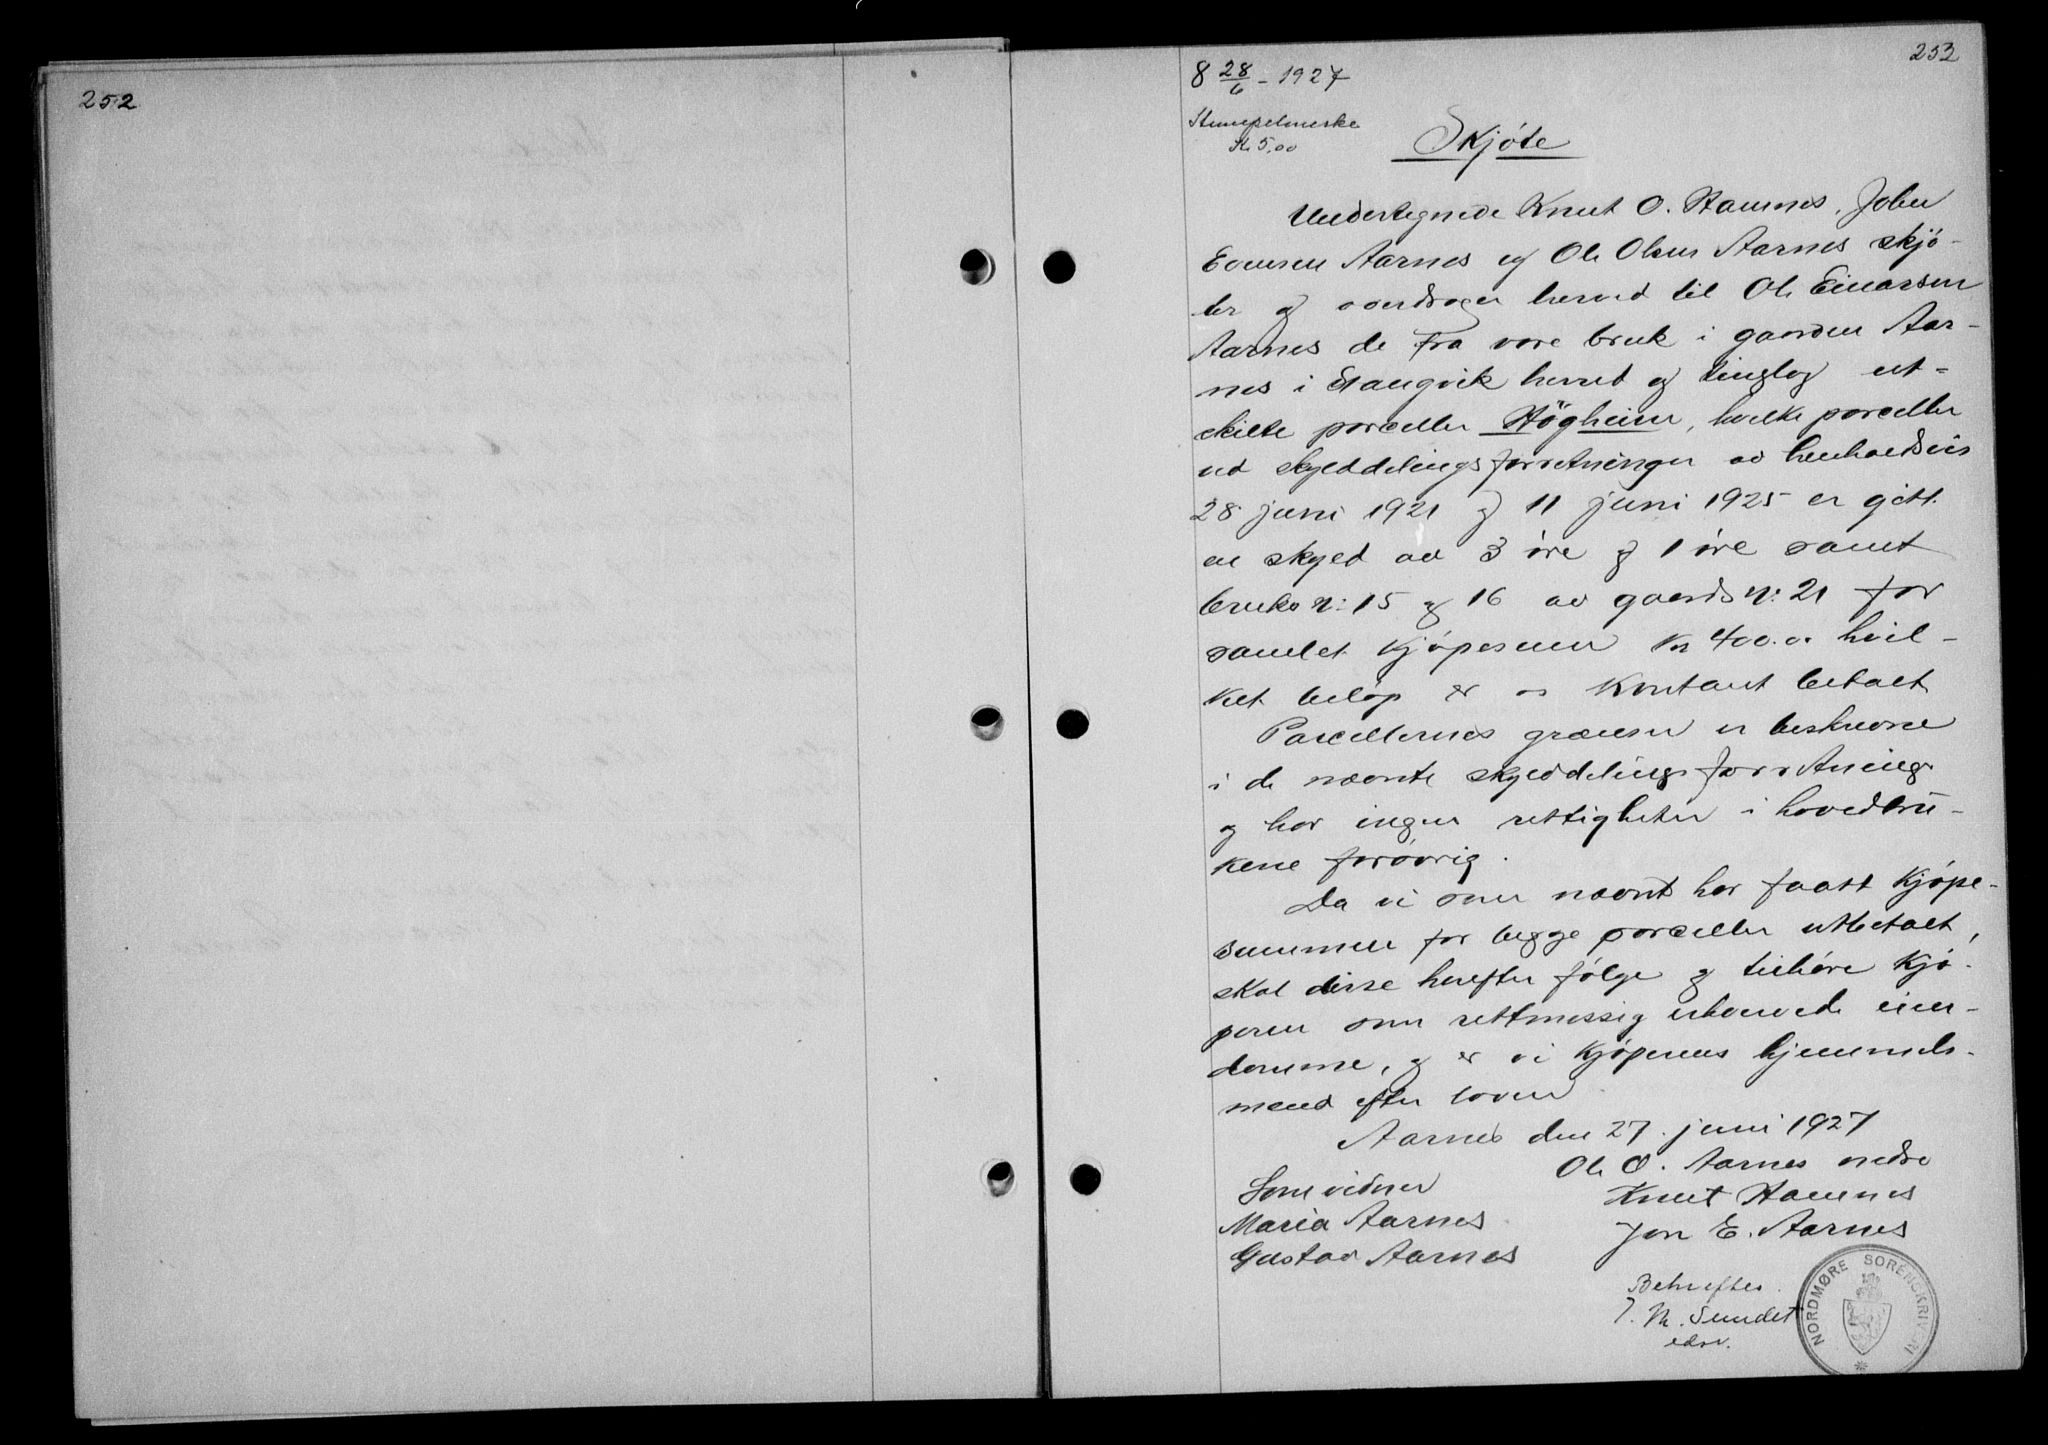 252
253
8 28/6 - 1927
Stempelmerke
Kr 5,00
Skjøte
Undertegnede Knut O. Hamnes, John
Evensen Aarnes og Ole Olsen Aarnes skjø-
ter og overdrager herved til Ole Einarsen
Aarnes de fra vore bruk i gaarden Aar-
nes i Stangvik herred og tinglag ut-
skilte parceller Høgheim, hvilke parceller
ved skylddelingsforretninger av henholdsvis
28 juni 1921 og 11 juni 1925 er gitt
en skyld av 3 øre og 1 øre samt
bruks Nr: 15 og 16 av gaards Nr: 21 for
samlet kjøpesum Kr 400.00 hvil-
ket beløp er os kontant betalt
Parcellernes grænser er beskrevne
i de nævnte skylddelingsforretning
og har ingen rettigheter i hovedbru-
kene forøvrig.
Da vi som nævnt har faatt kjøpe-
summen for begge parceller utbetalt,
skal disse herefter følge og tilhøre kjø-
peren som rettmessig erhvervede eien-
domme, og er vi kjøperens hjemmels-
mend efter loven
Aarnes den 27. juni 1927
Ole O. Aarnes nedre
Som vidner
Knut Hamnes
Maria Aarnes
Jon E. Aarnes
Gustav Aarnes
Bekreftes.
M. Sundet
edsv.
NORDMØRE SORENSKRIVERI